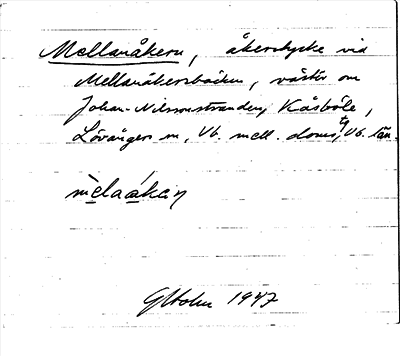 Mellanåkern, åkerstycke vid
Mellanåkersbäcken, väster om
Johan-Nilssonstranden, Kåsböle,
Lövångers sn, Vb. mell. doms tg Vb. län.
mèlaákaŋ
GHolm 1947